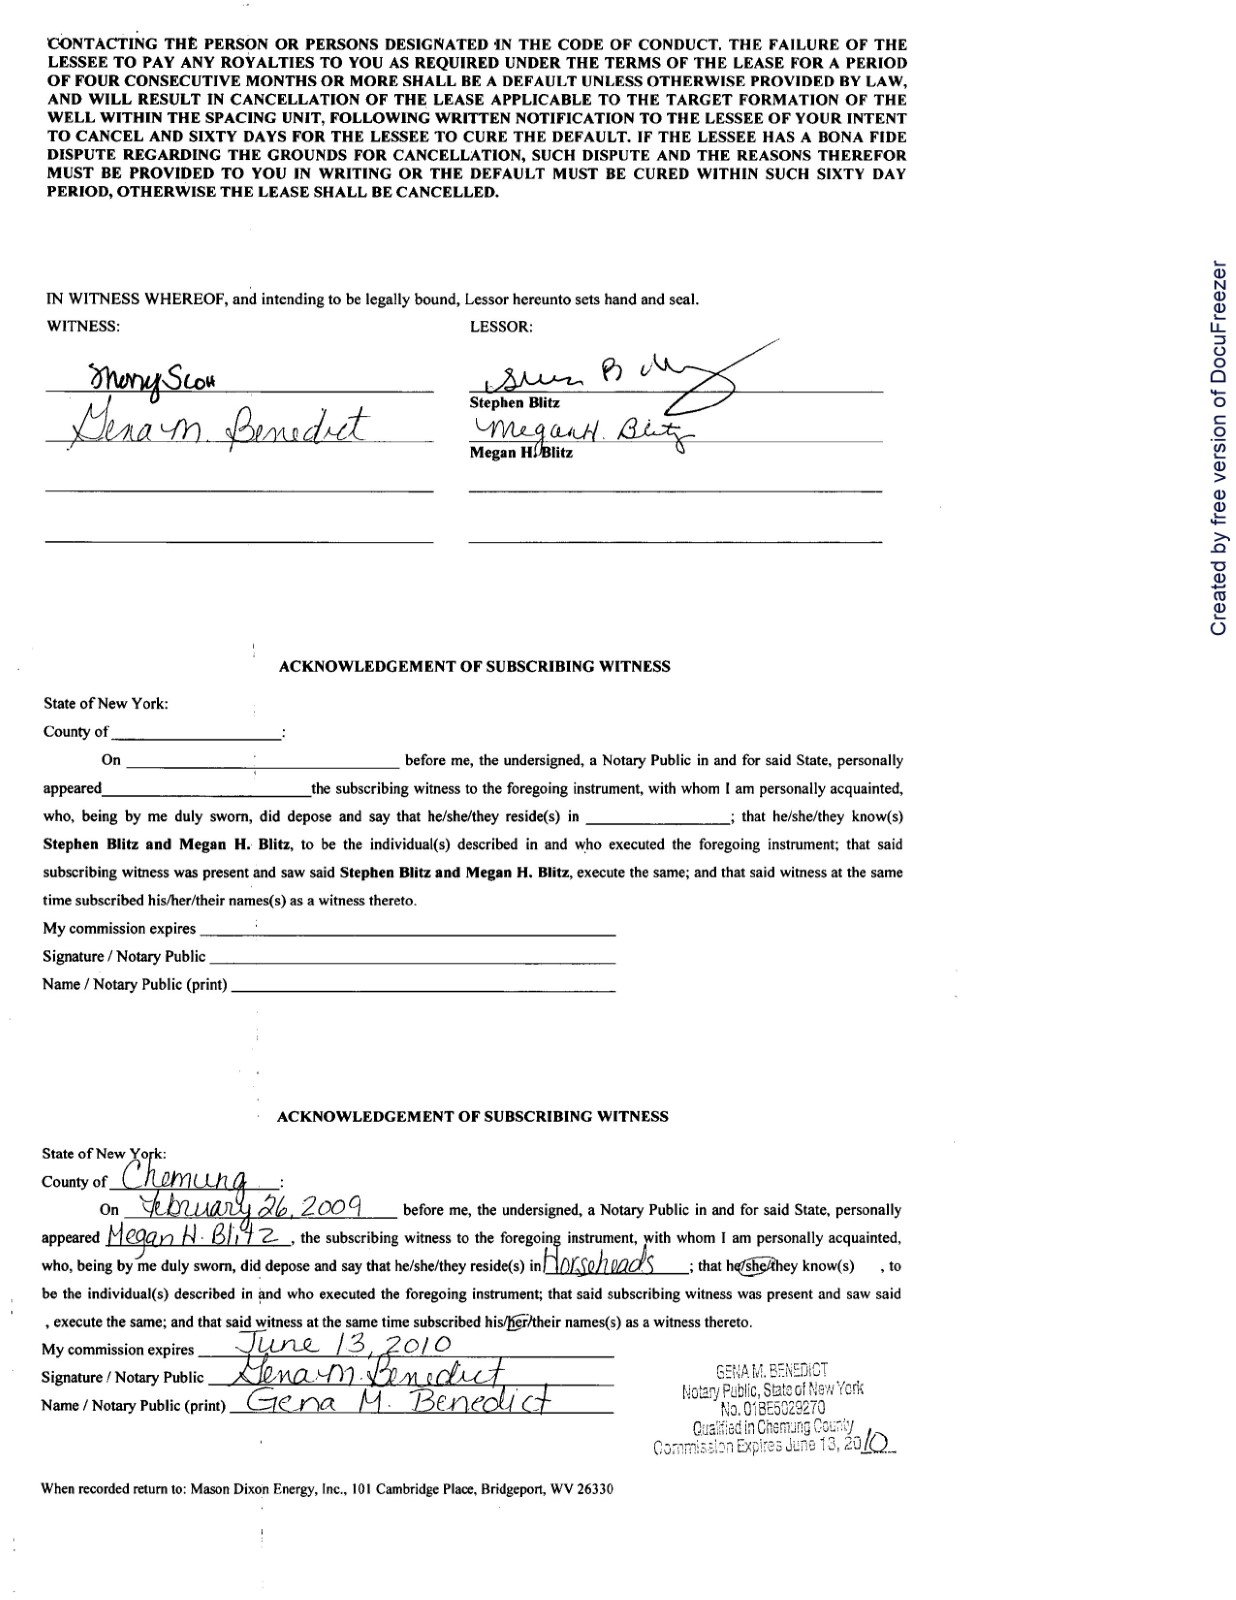 CONTACTING THE PERSON OR PERSONS DESIGNATED IN THE CODE OF CONDUCT. THE FAILURE OF THE
LESSEE TO PAY ANY ROYALTIES TO YOU AS REQUIRED UNDER THE TERMS OF THE LEASE FOR A PERIOD
OF FOUR CONSECUTIVE MONTHS OR MORE SHALL BE A DEFAULT UNLESS OTHERWISE PROVIDED BY LAW,
AND WILL RESULT IN CANCELLATION OF THE LEASE APPLICABLE TO THE TARGET FORMATION OF THE
WELL WITHIN THE SPACING UNIT, FOLLOWING WRITTEN NOTIFICATION TO THE LESSEE OF YOUR INTENT
TO CANCEL AND SIXTY DAYS FOR THE LESSEE TO CURE THE DEFAULT. IF THE LESSEE HAS A BONA FIDE
DISPUTE REGARDING THE GROUNDS FOR CANCELLATION, SUCH DISPUTE AND THE REASONS THEREFOR
MUST BE PROVIDED TO YOU IN WRITING OR THE DEFAULT MUST BE CURED WITHIN SUCH SIXTY DAY
PERIOD, OTHERWISE THE LEASE SHALL BE CANCELLED.
IN WITNESS WHEREOF, and intending to be legally bound, Lessor hereunto sets hand and seal.
WITNESS: LESSOR:
Scott
Stephen Blitz
Gena M. Benedict Megan H. Blitz
Megan H. Blitz
ACKNOWLEDGEMENT OF SUBSCRIBING WITNESS
State of New York:
County of :
On before me, the undersigned, a Notary Public in and for said State, personally
appeared the subscribing witness to the foregoing instrument, with whom I am personally acquainted,
who, being by me duly sworn, did depose and say that he/she/they reside(s) in ; that he/she/they know(s)
Stephen Blitz and Megan H. Blitz, to be the individual(s) described in and who executed the foregoing instrument; that said
subscribing witness was present and saw said Stephen Blitz and Megan H. Blitz, execute the same; and that said witness at the same
time subscribed his/her/their names(s) as a witness thereto.
My commission expires
Signature / Notary Public
Name / Notary Public (print)
ACKNOWLEDGEMENT OF SUBSCRIBING WITNESS
State of New York:
County of Chemung :
On February 26, 2009 before me, the undersigned, a Notary Public in and for said State, personally
appeared Megan H. Blitz , the subscribing witness to the foregoing instrument, with whom I am personally acquainted,
who, being by me duly sworn, did depose and say that he/she/they reside(s) in Horseheads ; that he/she/they know(s) , to
be the individual(s) described in and who executed the foregoing instrument; that said subscribing witness was present and saw said
, execute the same; and that said witness at the same time subscribed his/her/their names(s) as a witness thereto.
My commission expires June 13, 2010
Signature / Notary Public Gena M. Benedict
Name / Notary Public (print) Gena M. Benedict
GENA M. BENEDICT
Notary Public, State of New York
No. 01BE5029270
Qualified in Chemung County
Commission Expires June 13, 2010
When recorded return to: Mason Dixon Energy, Inc., 101 Cambridge Place, Bridgeport, WV 26330
Created by free version of DocuFreezer